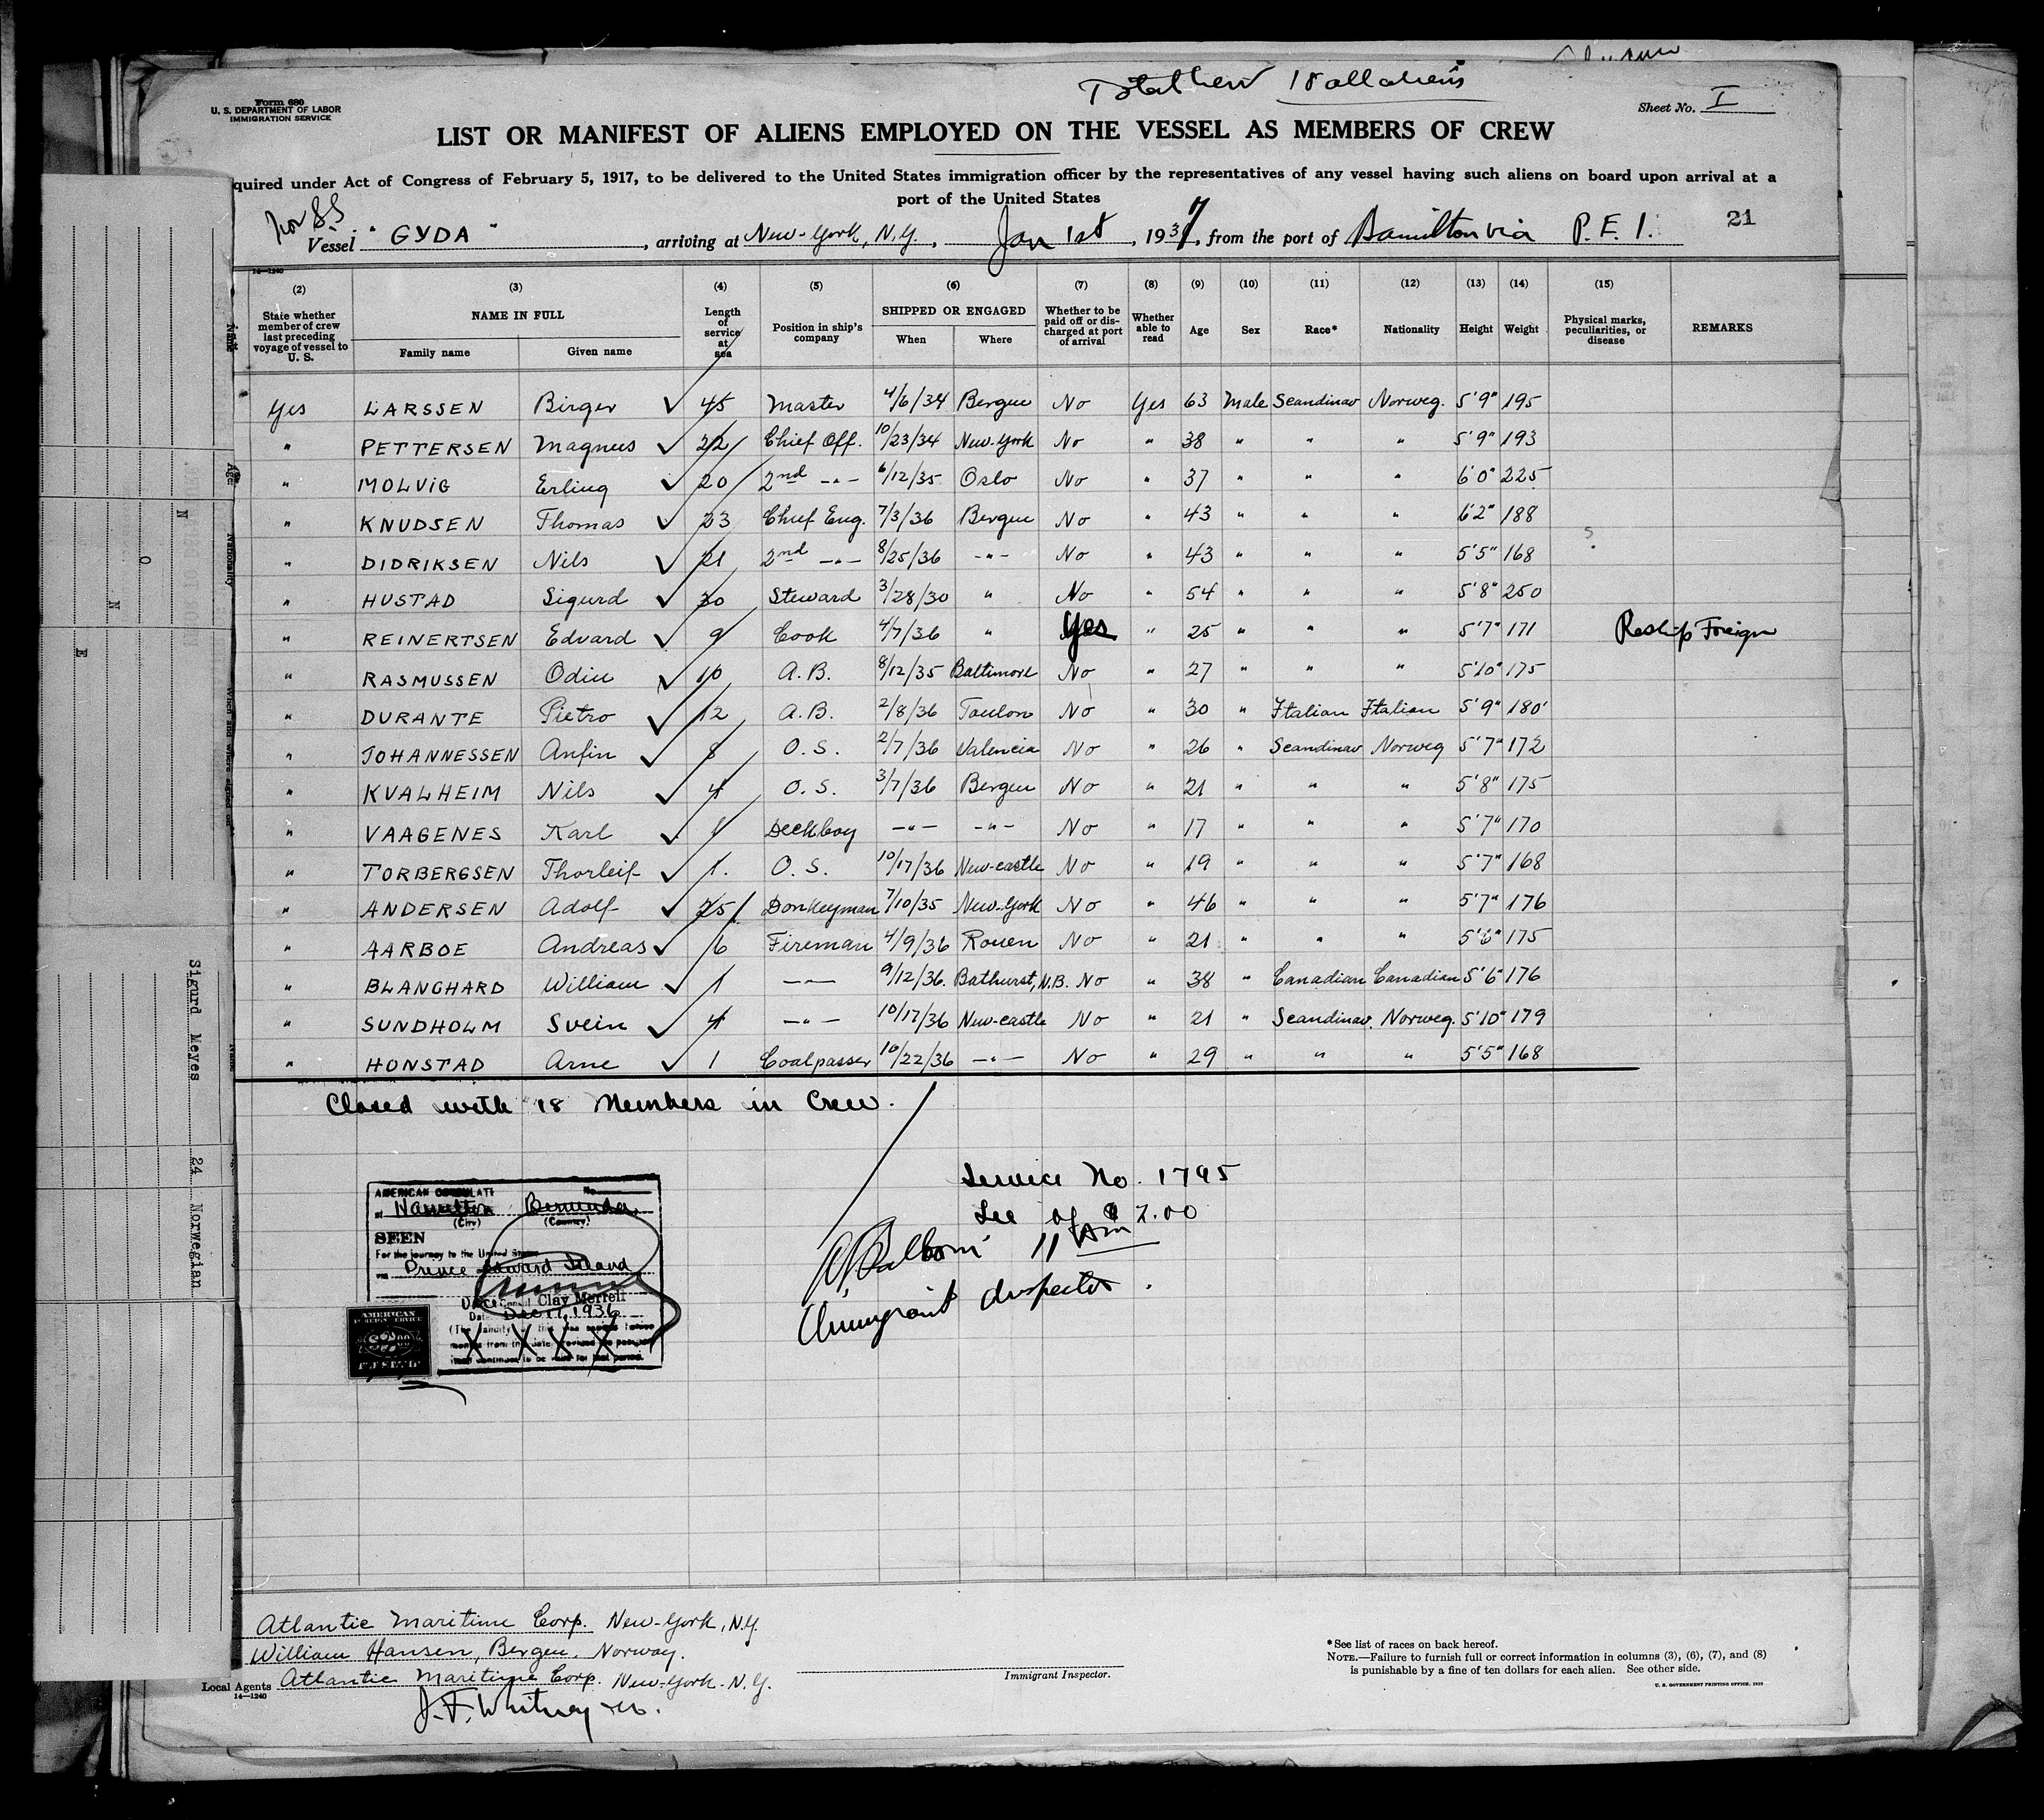 Total Crew 18 all aliens
Form 680
U. S. DEPARTMENT OF LABOR
IMMIGRATION SERVICE
Sheet No. I
LIST OR MANIFEST OF ALIENS EMPLOYED ON THE VESSEL AS MEMBERS OF CREW
quired under Act of Congress of February 5, 1917, to be delivered to the United States immigration officer by the representatives of any vessel having such aliens on board upon arrival at a
port of the United States
Nor SS
Vessel "GYDA", arriving at New-York, N.Y., Jan 1st, 1937, from the port of Hamilton via P. E. I. 21
14—1240
(2) (3) (4) (5) (6) (7) (8) (9) (10) (11) (12) (13) (14) (15)
State whether member of crew last preceding voyage of vessel to U. S. NAME IN FULL Family name Given name Length of service at sea Position in ship's company SHIPPED OR ENGAGED When Where Whether to be paid off or discharged at port of arrival Whether able to read Age Sex Race* Nationality Height Weight Physical marks, peculiarities, or disease REMARKS
Yes LARSSEN Birger ✓ 45 Master 4/6/34 Bergen No Yes 63 Male Scandinav Norweg. 5'9" 195
" PETTERSEN Magnus ✓ 22 Chief Off. 10/23/34 New-York No " 38 " " " 5'9" 193
" MOLVIG Erling ✓ 20 2nd -"- 6/12/35 Oslo No " 37 " " " 6'0" 225
" KNUDSEN Thomas ✓ 23 Chief Eng. 7/3/36 Bergen No " 43 " " " 6'2" 188
" DIDRIKSEN Nils ✓ 21 2nd -"- 8/25/36 -"- No " 43 " " " 5'5" 168
" HUSTAD Sigurd ✓ 30 Steward 3/28/30 " No " 54 " " " 5'8" 250
" REINERTSEN Edvard ✓ 9 Cook 4/7/36 " Yes " 25 " " " 5'7" 171 Reship Foreign
" RASMUSSEN Odin ✓ 10 A.B. 8/12/35 Baltimore No " 27 " " " 5'10" 175
" DURANTE Pietro ✓ 12 A.B. 2/8/36 Toulon No " 30 " Italian Italian 5'9" 180
" JOHANNESSEN Anfin ✓ 8 O.S. 2/7/36 Valencia No " 26 " Scandinav Norweg 5'7" 172
" KVALHEIM Nils ✓ 4 O.S. 3/7/36 Bergen No " 21 " " " 5'8" 175
" VAAGENES Karl ✓ 1 Deckboy -"- -"- No " 17 " " " 5'7" 170
" TORBERGSEN Thorleif ✓ 1. O.S. 10/17/36 New-castle No " 19 " " " 5'7" 168
" ANDERSEN Adolf ✓ 25 Donkeyman 7/10/35 New-York No " 46 " " " 5'7" 176
" AARBOE Andreas ✓ 6 Fireman 4/9/36 Rouen No " 21 " " " 5'6" 175
" BLANCHARD William ✓ 1 -"- 9/12/36. Bathurst, N.B. No " 38 " Canadian Canadian 5'6" 176
" SUNDHOLM Svein ✓ 4 -"- 10/17/36 New-castle No " 21 " Scandinav. Norweg. 5'10" 179
" HONSTAD Arne ✓ 1 Coalpasser 10/22/36 -"- No " 29 " " " 5'5" 168
Closed with 18 Members in Crew.
AMERICAN CONSULATE No.
at Hamilton Bermuda
(City) (Country)
SEEN
For the journey to the United States
via Prince Edward Island
Vice Consul Clay Merrell
Date Dec 17, 1936
AMERICAN
FOREIGN SERVICE
Service No. 1795
Fee of $ 2.00
11 AM
Immigrant Inspector.
Atlantic Maritime Corp. New-York, N.Y.
William Hansen, Bergen, Norway.
Local Agents Atlantic Maritime Corp. New-York. N.Y.
14—1240
J. F. Whitney & Co.
Immigrant Inspector.
*See list of races on back hereof.
NOTE.—Failure to furnish full or correct information in columns (3), (6), (7), and (8)
is punishable by a fine of ten dollars for each alien. See other side.
U. S. GOVERNMENT PRINTING OFFICE
Sigurd Meyes 24 Norwegian
Age
Nationality
N O N E